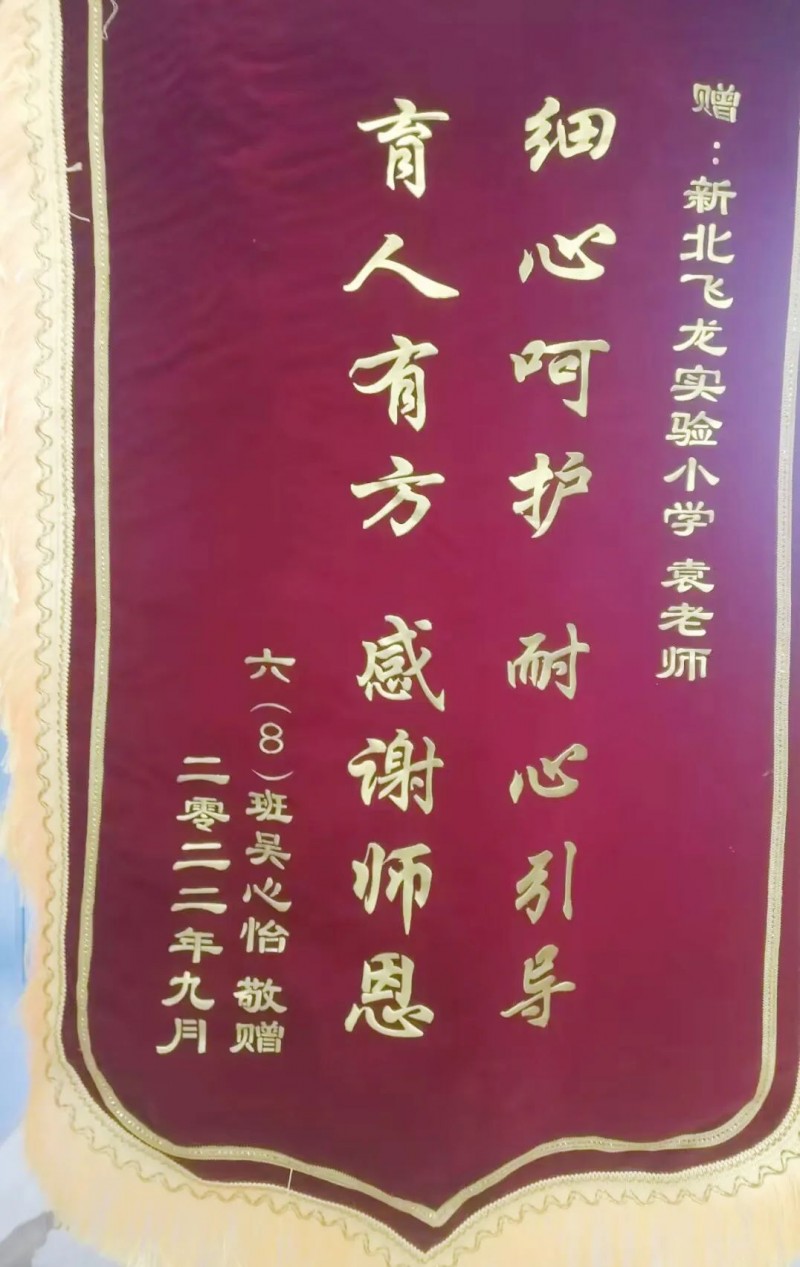 赠：新北飞龙实验小学 袁老师
细心呵护 耐心引导
育人有方 感谢师恩
六（8）班吴心怡 敬赠
二零二二年九月